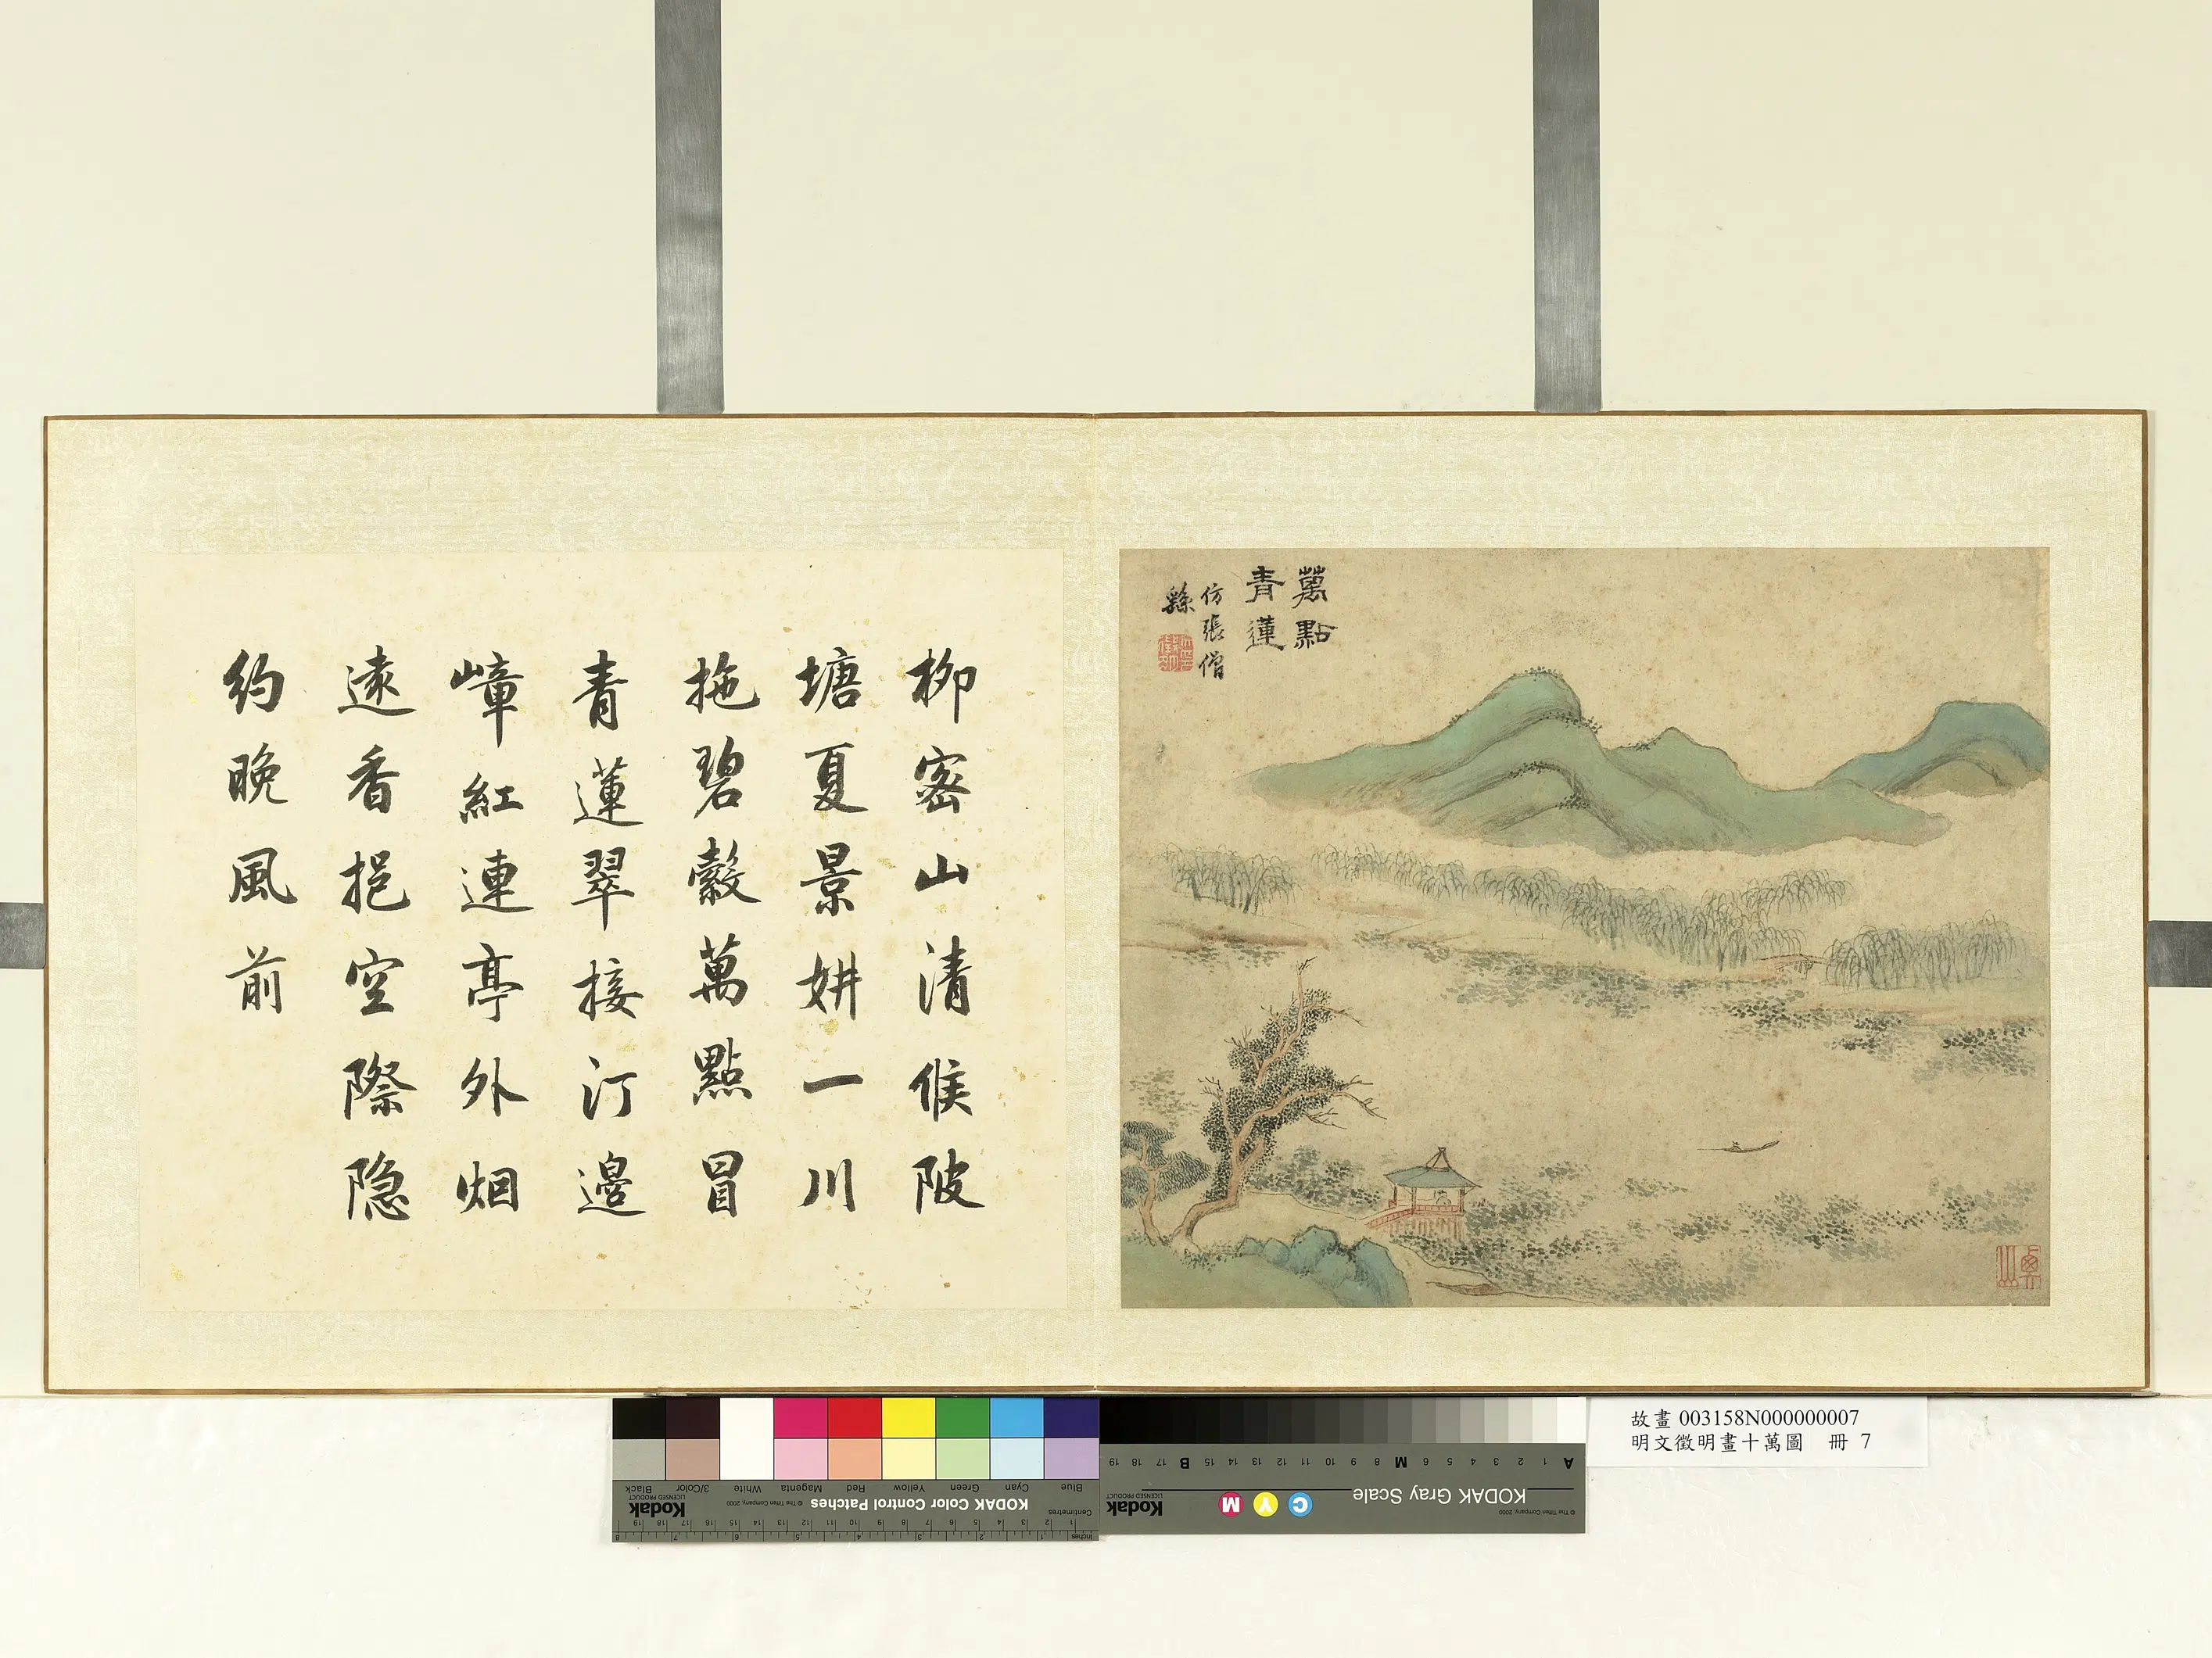 萬點
青蓮
仿張僧
繇
柳密山清候陂
塘夏景妍一川
拖碧縠萬點冒
青蓮翠接汀邊
嶂紅連亭外烟
遠香挹空際隐
約晚風前
故畫 003158N000000007
明文徵明畫十萬圖 冊 7
KODAK Color Control Patches
Kodak
LICENSED PRODUCT
© The Tiffen Company, 2000
Blue Cyan Green Yellow Red Magenta White 3/Color Black
Centimetres
Inches
KODAK Gray Scale
Kodak
LICENSED PRODUCT
© The Tiffen Company, 2000
C Y M
A 1 2 3 4 5 6 M 8 9 10 11 12 13 14 15 B 17 18 19